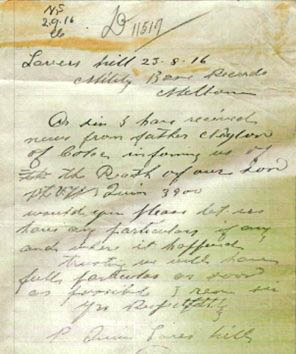 2.9.16
D 11517
Lavers hill 23-8-16
Military Base Records
Melbour
Dr Sir I have received
news from father Clayton
of Colac informing us of
the Death of our Son
Quinn 3900
would you please let us
have any particulars if any
and where it happened
trusting we will have
full particulars as soon
as possible I rem sir
Yrs Respectfully
P Quinn Lavers hill